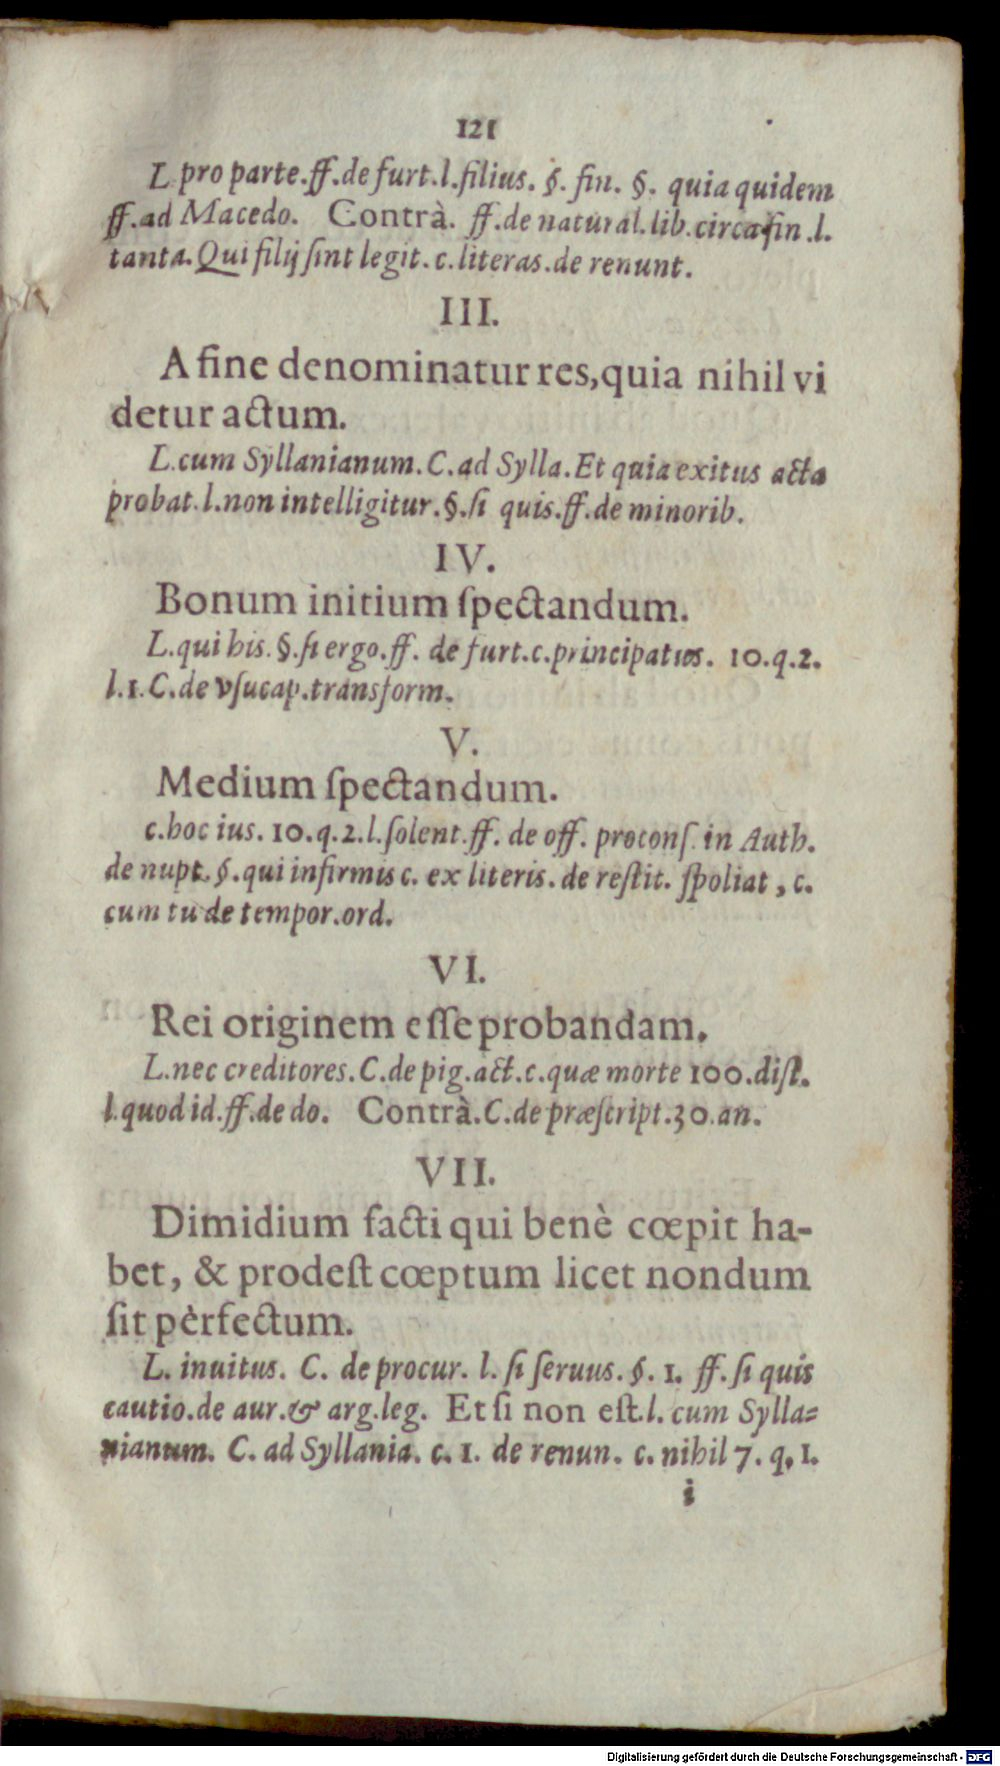 121
L. pro parte. ff. de furt. l. filius. §. fin. §. quia quidem
ff. ad Macedo. Contrà. ff. de natural. lib. circa fin. l.
tanta. Qui filij ſint legit. c. literas. de renunt.
III.
A fine denominatur res, quia nihil vi
detur actum.
L. cum Syllanianum. C. ad Sylla. Et quia exitus acta
probat. l. non intelligitur. §. ſi quis. ff. de minorib.
IV.
Bonum initium ſpectandum.
L. qui his. §. ſi ergo. ff. de furt. c. principatus. 10. q. 2.
l. 1. C. de vſucap. transform.
V.
Medium ſpectandum.
c. hoc ius. 10. q. 2. l. ſolent. ff. de off. proconſ. in Auth.
de nupt. §. qui infirmis c. ex literis. de reſtit. ſpoliat, c.
cum tu de tempor. ord.
VI.
Rei originem eſſe probandam.
L. nec creditores. C. de pig. act. c. quæ morte 100. diſt.
l. quod id. ff. de do. Contrà. C. de præſcript. 30. an.
VII.
Dimidium facti qui benè cœpit ha-
bet, & prodeſt cœptum licet nondum
ſit pèrfectum.
L. inuitus. C. de procur. l. ſi ſeruus. §. 1. ff. ſi quis
cautio. de aur. & arg. leg. Et ſi non eſt. l. cum Sylla-
nianum. C. ad Syllania. c. 1. de renun. c. nihil 7. q. 1.
i
Digitalisierung gefördert durch die Deutsche Forschungsgemeinschaft - DFG